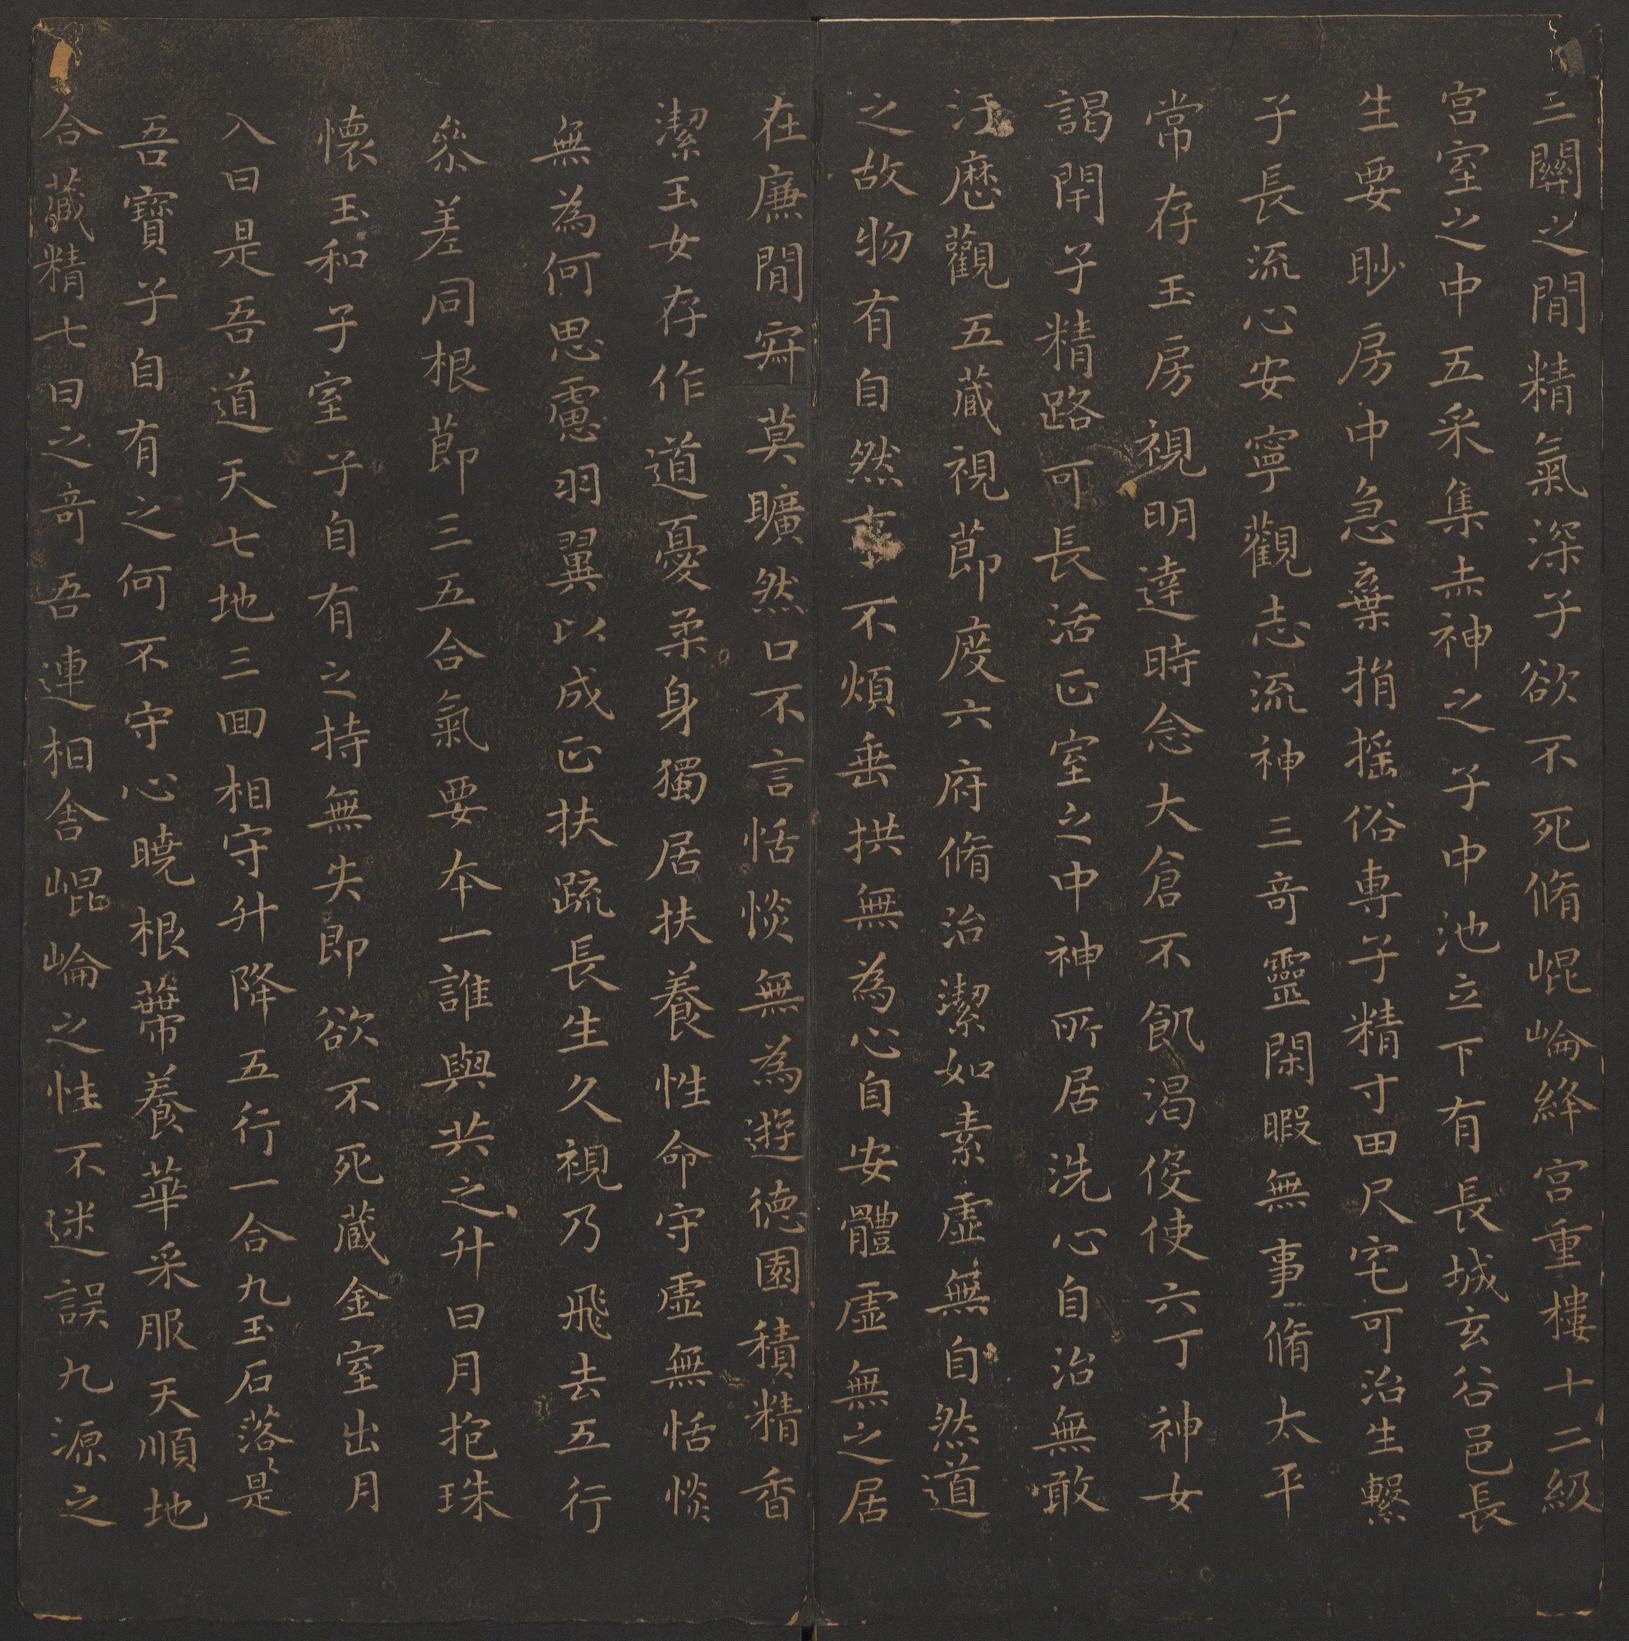 三關之間精氣深子欲不死脩崐崘絳宮重樓十二級
宮室之中五采集赤神之子中池立下有長城玄谷邑長
生要眇房中急棄捐搖俗專子精寸田尺宅可治生繫
子長流心安寧觀志流神三奇靈閑暇無事脩太平
常存玉房視明達時念大倉不飢渴役使六丁神女
謁閇子精路可長活正室之中神所居洗心自治無敢
汙歷觀五藏視節度六府脩治潔如素虛無自然道
之故物有自然事不煩垂拱無為心自安體虛無之居
在廉閒寂莫曠然口不言恬惔無為遊德園積精香
潔玉女存作道憂柔身獨居扶養性命守虛無恬惔
無為何思慮羽翼以成正扶疏長生久視乃飛去五行
叅差同根節三五合氣要本一誰與共之升日月抱珠
懷玉和子室子自有之持無失即欲不死藏金室出月
入日是吾道天七地三回相守升降五行一合九玉石落是
吾寶子自有之何不守心曉根蔕養華采服天順地
合藏精七日之奇吾連相舍崐崘之性不迷誤九源之